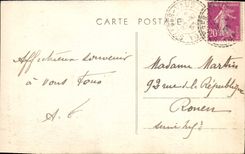 CARTE POSTALE
20
Affectueux souvenir
à vous tous
A. G
Madame Martin
92 rue de la République
Rouen